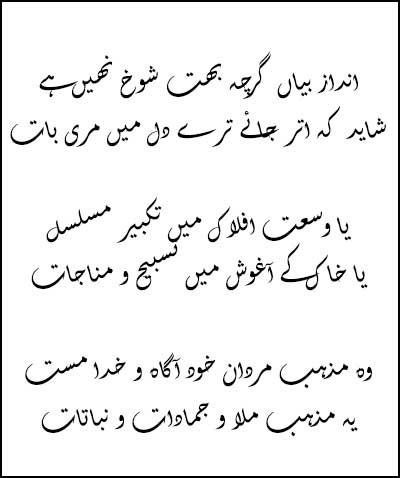 انداز بیاں گرچہ بہت شوخ نہیں ہے
شاید کہ اتر جائے ترے دل میں مری بات
یا وسعت افلاک میں تکبیر مسلسل
یا خاک کے آغوش میں تسبیح و مناجات
وہ مذہب مردان خود آگاہ و خدا مست
یہ مذہب ملا و جمادات و نباتات